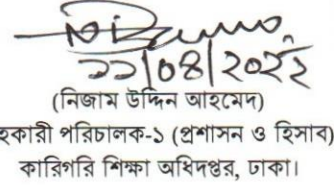 ১১/০৪/২০২২
(নিজাম উদ্দিন আহমেদ)
হকারী পরিচালক-১ (প্রশাসন ও হিসাব)
কারিগরি শিক্ষা অধিদপ্তর, ঢাকা।